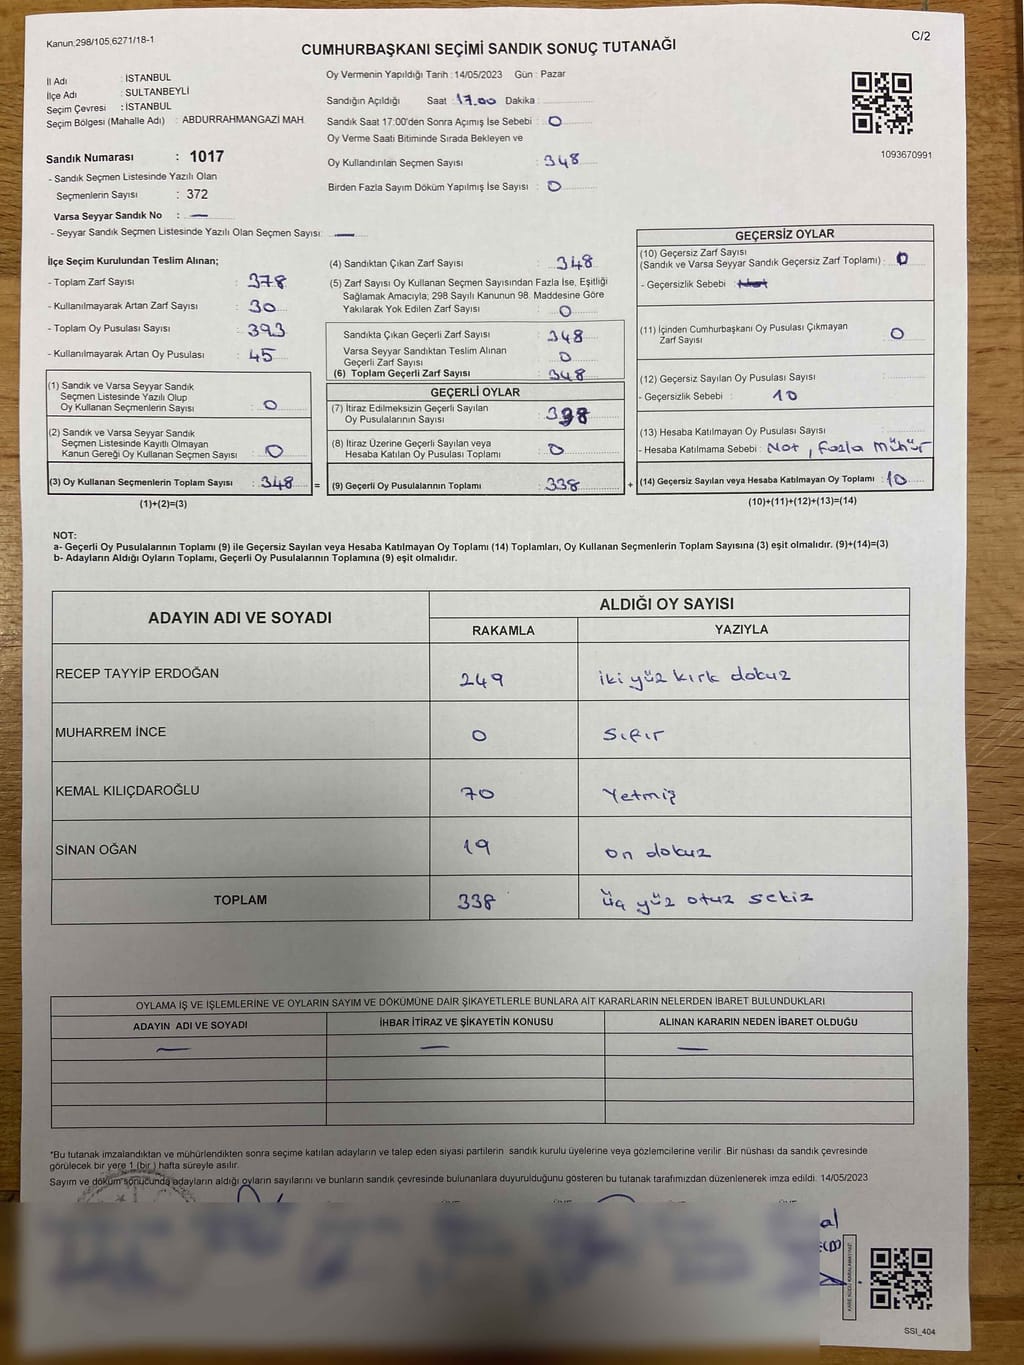 Kanun;298/105,6271/18-1
C/2
CUMHURBAŞKANI SEÇİMİ SANDIK SONUÇ TUTANAĞI
İl Adı : İSTANBUL
İlçe Adı : SULTANBEYLİ
Seçim Çevresi : İSTANBUL
Seçim Bölgesi (Mahalle Adı) : ABDURRAHMANGAZİ MAH.
Sandık Numarası : 1017
- Sandık Seçmen Listesinde Yazılı Olan
Seçmenlerin Sayısı : 372
Varsa Seyyar Sandık No : —
- Seyyar Sandık Seçmen Listesinde Yazılı Olan Seçmen Sayısı: —
Oy Vermenin Yapıldığı Tarih : 14/05/2023 Gün : Pazar
Sandığın Açıldığı Saat : 17.00 Dakika :
Sandık Saat 17:00'den Sonra Açımış İse Sebebi : 0
Oy Verme Saati Bitiminde Sırada Bekleyen ve
Oy Kullandırılan Seçmen Sayısı : 348
Birden Fazla Sayım Döküm Yapılmış İse Sayısı : 0
1093670991
İlçe Seçim Kurulundan Teslim Alınan;
- Toplam Zarf Sayısı : 378
- Kullanılmayarak Artan Zarf Sayısı : 30
- Toplam Oy Pusulası Sayısı : 393
- Kullanılmayarak Artan Oy Pusulası : 45
(1) Sandık ve Varsa Seyyar Sandık
Seçmen Listesinde Yazılı Olup
Oy Kullanan Seçmenlerin Sayısı : 0
(2) Sandık ve Varsa Seyyar Sandık
Seçmen Listesinde Kayıtlı Olmayan
Kanun Gereği Oy Kullanan Seçmen Sayısı : 0
(3) Oy Kullanan Seçmenlerin Toplam Sayısı : 348 =
(1)+(2)=(3)
(4) Sandıktan Çıkan Zarf Sayısı : 348
(5) Zarf Sayısı Oy Kullanan Seçmen Sayısından Fazla İse, Eşitliği
Sağlamak Amacıyla; 298 Sayılı Kanunun 98. Maddesine Göre
Yakılarak Yok Edilen Zarf Sayısı : 0
Sandıkta Çıkan Geçerli Zarf Sayısı : 348
Varsa Seyyar Sandıktan Teslim Alınan
Geçerli Zarf Sayısı : 0
(6) Toplam Geçerli Zarf Sayısı : 348
GEÇERLİ OYLAR
(7) İtiraz Edilmeksizin Geçerli Sayılan
Oy Pusulalarının Sayısı : 338
(8) İtiraz Üzerine Geçerli Sayılan veya
Hesaba Katılan Oy Pusulası Toplamı : 0
(9) Geçerli Oy Pusulalarının Toplamı : 338 +
GEÇERSİZ OYLAR
(10) Geçersiz Zarf Sayısı
(Sandık ve Varsa Seyyar Sandık Geçersiz Zarf Toplamı) : 0
- Geçersizlik Sebebi :
(11) İçinden Cumhurbaşkanı Oy Pusulası Çıkmayan
Zarf Sayısı : 0
(12) Geçersiz Sayılan Oy Pusulası Sayısı :
- Geçersizlik Sebebi : 10
(13) Hesaba Katılmayan Oy Pusulası Sayısı :
- Hesaba Katılmama Sebebi : Not, fazla mühür
(14) Geçersiz Sayılan veya Hesaba Katılmayan Oy Toplamı : 10
(10)+(11)+(12)+(13)=(14)
NOT:
a- Geçerli Oy Pusulalarının Toplamı (9) ile Geçersiz Sayılan veya Hesaba Katılmayan Oy Toplamı (14) Toplamları, Oy Kullanan Seçmenlerin Toplam Sayısına (3) eşit olmalıdır. (9)+(14)=(3)
b- Adayların Aldığı Oyların Toplamı, Geçerli Oy Pusulalarının Toplamına (9) eşit olmalıdır.
ADAYIN ADI VE SOYADI
ALDIĞI OY SAYISI
RAKAMLA YAZIYLA
RECEP TAYYİP ERDOĞAN 249 iki yüz kırk dokuz
MUHARREM İNCE 0 Sıfır
KEMAL KILIÇDAROĞLU 70 Yetmiş
SİNAN OĞAN 19 on dokuz
TOPLAM 338 üç yüz otuz sekiz
OYLAMA İŞ VE İŞLEMLERİNE VE OYLARIN SAYIM VE DÖKÜMÜNE DAİR ŞİKAYETLERLE BUNLARA AİT KARARLARIN NELERDEN İBARET BULUNDUKLARI
ADAYIN ADI VE SOYADI İHBAR İTİRAZ VE ŞİKAYETİN KONUSU ALINAN KARARIN NEDEN İBARET OLDUĞU
— — —
*Bu tutanak imzalandıktan ve mühürlendikten sonra seçime katılan adayların ve talep eden siyasi partilerin sandık kurulu üyelerine veya gözlemcilerine verilir. Bir nüshası da sandık çevresinde
görülecek bir yere 1 (bir ) hafta süreyle asılır.
Sayım ve döküm sonucunda adayların aldığı oyların sayılarını ve bunların sandık çevresinde bulunanlara duyurulduğunu gösteren bu tutanak tarafımızdan düzenlenerek imza edildi. 14/05/2023
SSI_404